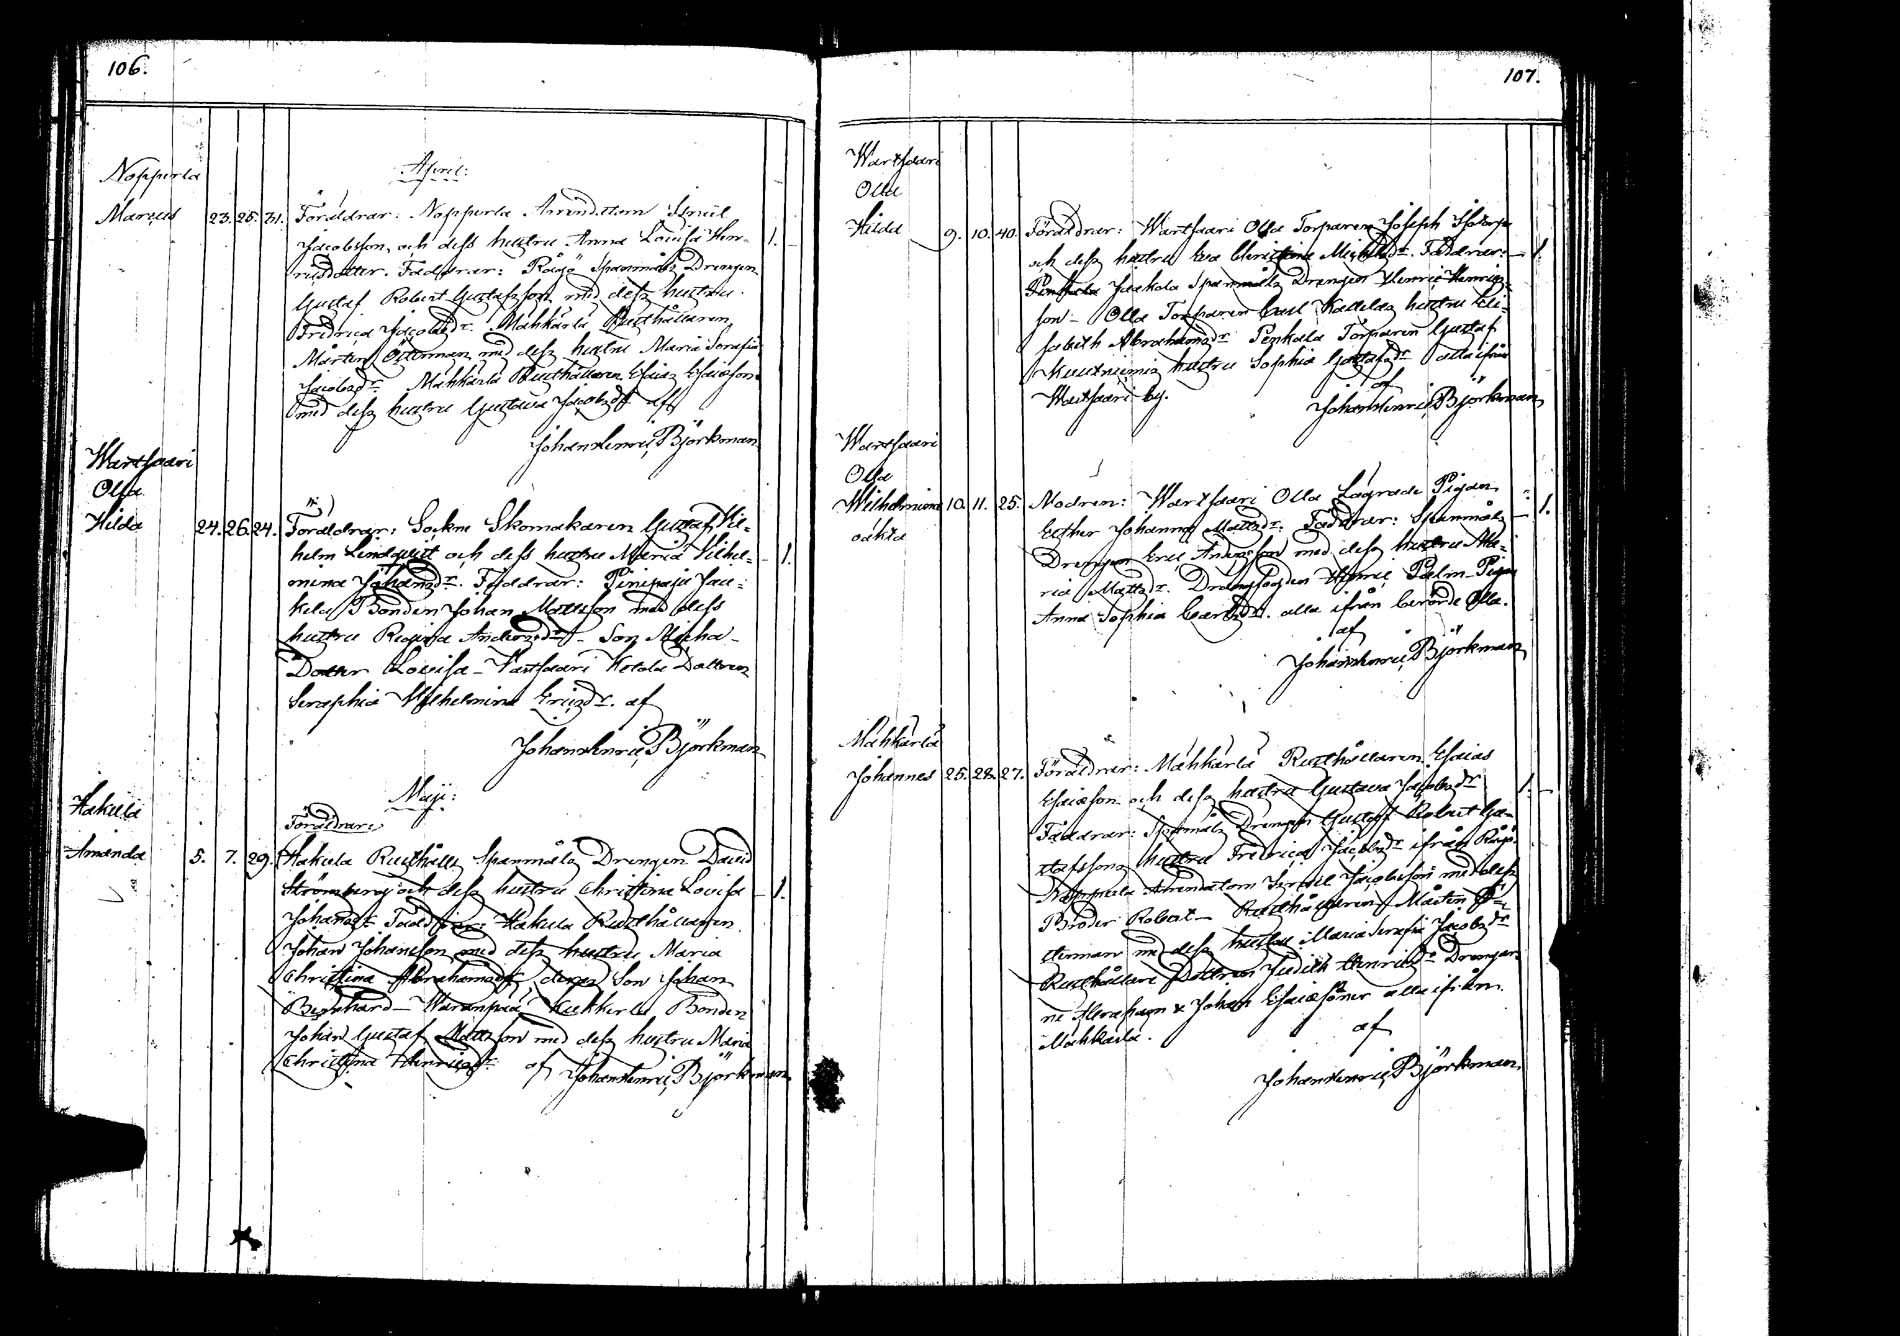 106.
Nopperla
April:
Marcus 23. 25. 31. Föräldrar: Nopperla Arrendatorn Isräel
Jacobsson, och dess hustru Anna Lovisa Hen-
ricsdotter. Faddrar: Röisjö Spanmåls Drengen 1.
Gustaf Robert Gustafsson med dess hustru
Fredrica Jacobsdr. Mahkarla Rusthållaren
Mårten Österman med dess hustru Maria Serafia
Jacobsdr Mahkarla Rusthållaren Esaias Esaiæson
med dess hustru Gustava Jacobsdr af
Johan Henric Björkman
Wartsaari
Olla
Hilda 24. 26. 24. Föräldrar: Sockne Skomakaren Gustaf Vil-
helm Lindqvist och dess hustru Maria Vilhel- 1.
mina Johansdr. Faddrar: Pinipaju Jau-
kela Bonden Johan Mattsson med dess
hustru Regina Andersdr - Son Micha-
Dotter Lovisa - Vartsaari Ketola Dottren
Seraphia Wilhelmina Ericsdr. af
Johan Henric Björkman
Maji:
Hakula
Föräldrar
Amanda 5. 7. 29. Hakula Rusthålls Spanmåls Drengen David
Strömberg och dess hustru Christina Lovisa 1.
Johansdr Faddrar: Hakula Rusthållaren
Johan Johansson med dess hustru Maria
Christina Abrahamsdr, deras Son Johan
Bernhard - Waranpää Kukkerla Bonden
Johan Gustaf Mattsson med dess hustru Maria
Christina Henricsdr. af Johan Henric Björkman
107.
Wartsaari
Olla
Hilda 9. 10. 40. Föräldrar: Wartsaari Olla Torparen Joseph
och dess hustru Eva Christina Michelsdr. Faddrar: 1.
Jaakola Spanmåls Drengen Henric Henrics-
son - Olla Torparen Carl Kallelas hustru Eli-
sabeth Abrahamsdr Penkala Torparen Gustaf
hustru Sophia Gustafsdr alla ifrån
Wartsaari by. af
Johan Henric Björkman
Wartsaari
Olla
Wilhelmina 10. 11. 25. Modren: Wartsaari Olla Lägrade Pigan
oäkta Esther Johanna Mattsdr. Faddrar: Spanmåls 1.
Drengen Eric Andersson med dess hustru Ma-
ria Mattsdr. Drengfogden Henric Palm - Pigan
Anna Sophia Carlsdr. alla ifrån berörde Olla.
af
Johan Henric Björkman
Mahkarla
Johannes 25. 28. 27. Föräldrar: Mahkarla Rusthållaren Esaias
Esaiæson och dess hustru Gustava Jacobsdr 1.
Faddrar: Spanmåls Drengen Gustaf Robert Gu-
stafssons hustru Fredrica Jacobsdr ifrån Röisjö
Nopperla Arrendatorn Isräel Jacobsson med dess
Broder Robert - Rusthållaren Mårten Ö-
sterman med dess hustru Maria Serafia Jacobsdr
Rusthållare Dottren Judith Henricsdr Drengar-
ne & Johan Esaiæsöner alla ifrån
Mahkarla.
af
Johan Henric Björkman